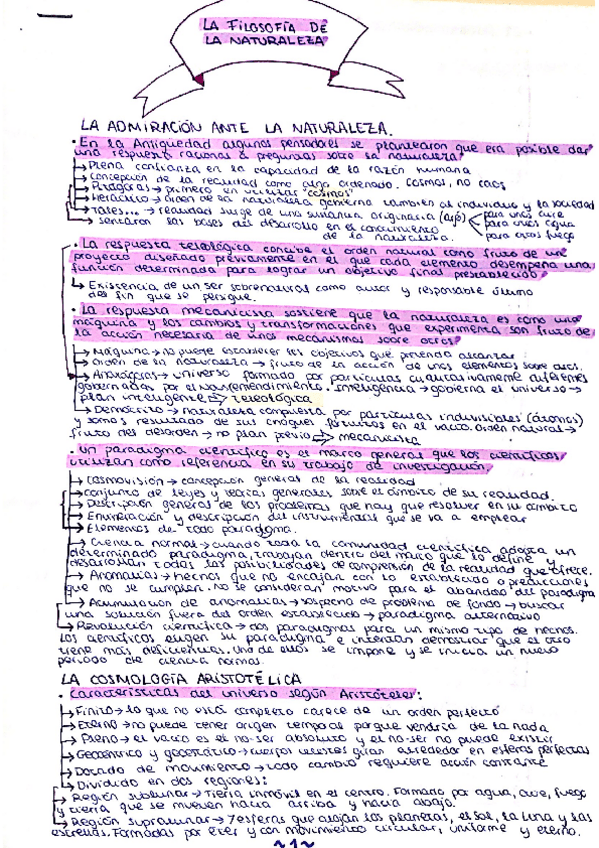 LA FILOSOFÍA DE
LA NATURALEZA
LA ADMIRACIÓN ANTE LA NATURALEZA.
· En la Antigüedad algunos pensadores se plantearon que era posible dar
una respuesta racional a preguntas sobre la naturaleza
↳ Plena confianza en la capacidad de la razón humana
Concepción de la realidad como algo ordenado. Cosmos, no caos
Pitágoras → primero en utilizar "cosmos"
Heráclito → orden de la naturaleza gobierna también al individuo y la sociedad
Tales... → realidad surge de una sustancia originaria (arjé) para unos aire
para unos agua
para otros fuego
sentaron las bases del desarrollo en el conocimiento
de la naturaleza.
· La respuesta teleológica concibe el orden natural como fruto de un
proyecto diseñado previamente en el que cada elemento desempeña una
función determinada para lograr un objetivo final preestablecido
↳ Existencia de un ser sobrenatural como autor y responsable último
del fin que se persigue.
· La respuesta mecanicista sostiene que la naturaleza es como una
máquina y los cambios y transformaciones que experimenta son fruto de
la acción necesaria de unos mecanismos sobre otros
→ Máquina → no puede establecer los objetivos que pretenda alcanzar
→ Orden de la naturaleza → fruto de la acción de unos elementos sobre otros.
→ Anaxágoras → universo formado por partículas cualitativamente diferentes
gobernadas por el Nous, entendimiento. Inteligencia → gobierna el universo →
plan inteligente ⇒ teleológica
↳ Demócrito → naturaleza compuesta por partículas indivisibles (átomos)
y somos resultado de sus choques fortuitos en el vacío. Orden natural →
fruto del desorden → no plan previo ⇒ mecanicista
· Un paradigma científico es el marco general que los científicos
utilizan como referencia en su trabajo de investigación.
→ Cosmovisión → concepción general de la realidad
→ Conjunto de leyes y teorías generales sobre el ámbito de su realidad.
→ Descripción general de los problemas que hay que resolver en su ámbito
→ Enumeración y descripción del instrumental que se va a emplear
→ Elementos de todo paradigma.
→ Ciencia normal → cuando toda la comunidad científica adopta un
determinado paradigma, trabajan dentro del marco que lo define y
desarrollan todas las posibilidades de comprensión de la realidad que ofrece.
→ Anomalías → hechos que no encajan con lo establecido o predicciones
que no se cumplen. No se consideran motivo para el abandono del paradigma
→ Acumulación de anomalías → sospecha de problema de fondo → buscar
una solución fuera del orden establecido → paradigma alternativo
↳ Revolución científica → dos paradigmas para un mismo tipo de hechos.
Los científicos eligen su paradigma e intentan demostrar que el otro
tiene más deficiencias. Uno de ellos se impone y se inicia un nuevo
período de ciencia normal.
LA COSMOLOGÍA ARISTOTÉLICA
· Características del universo según Aristóteles:
→ Finito → lo que no está completo carece de un orden perfecto
→ Eterno → no puede tener origen temporal porque vendría de la nada
→ Pleno → el vacío es el no-ser absoluto y el no-ser no puede existir
→ Geocéntrico y geoestático → cuerpos celestes giran alrededor en esferas perfectas
→ Dotado de movimiento → todo cambio requiere acción constante
→ Dividido en dos regiones:
→ Región sublunar → Tierra inmóvil en el centro. Formado por agua, aire, fuego
y tierra que se mueven hacia arriba y hacia abajo.
↳ Región supralunar → 7 esferas que alojan los planetas, el sol, la luna y las
estrellas. Formadas por éter y con movimiento circular, uniforme y eterno.
~1~